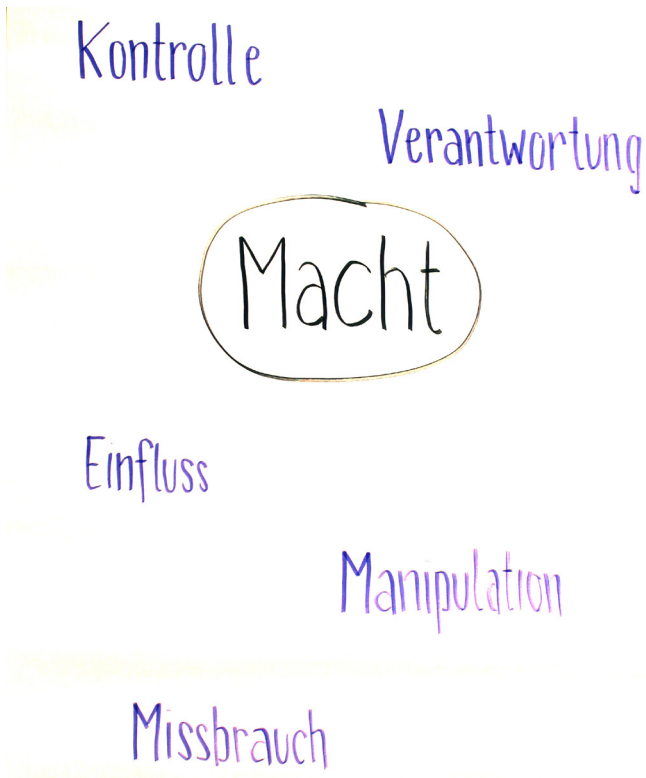 Kontrolle
Verantwortung
Macht
Einfluss
Manipulation
Missbrauch